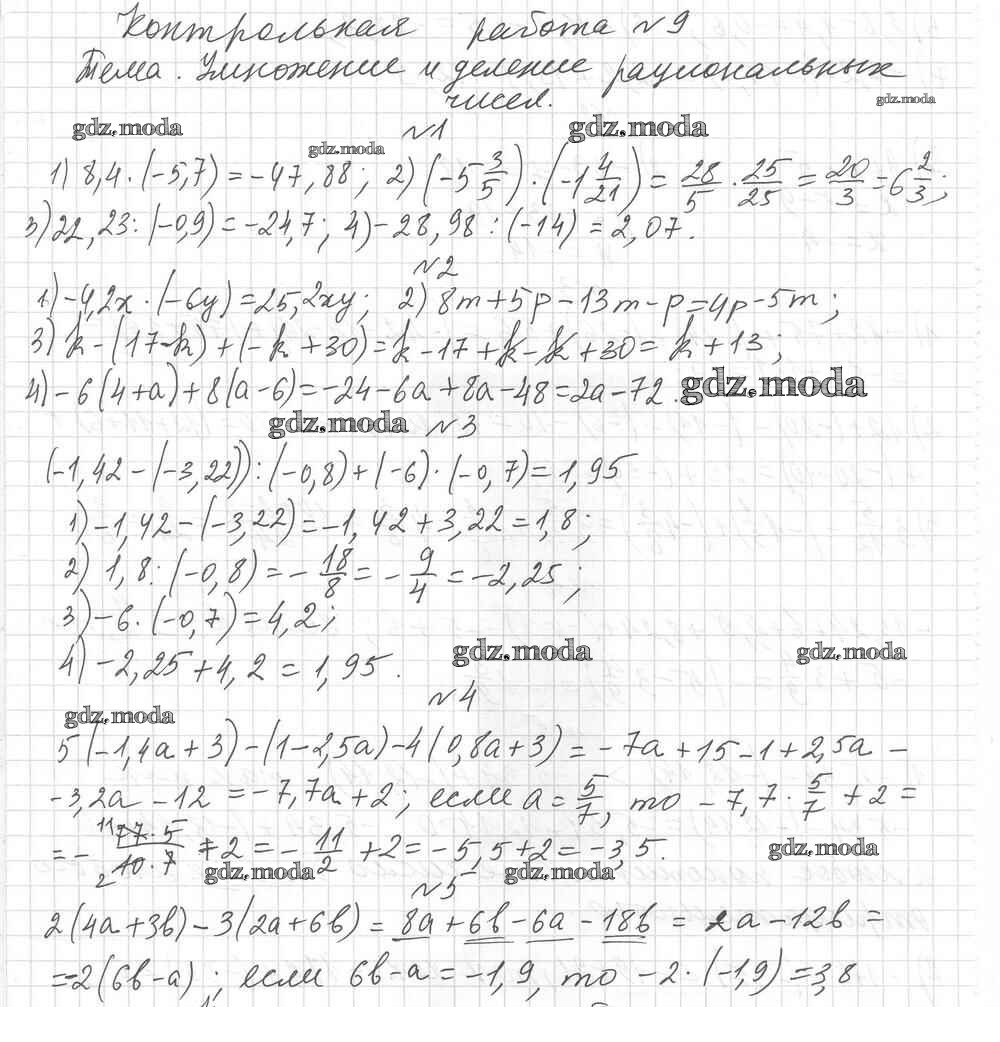 Контрольная работа №9
Тема. Умножение и деление рациональных
чисел.
gdz.moda
gdz.moda №1 gdz.moda
gdz.moda
1) 8,4·(-5,7) = -47,88; 2) (-5 3/5)·(-1 4/21) = 28/5 · 25/25 = 20/3 = 6 2/3;
3) 22,23:(-0,9) = -24,7; 4) -28,98 : (-14) = 2,07.
№2
1) -4,2x·(-6y) = 25,2xy; 2) 8m+5p-13m-p=4p-5m;
3) k-(17-k)+(-k+30)=k-17+k-k+30=k+13;
4) -6(4+a)+8(a-6)=-24-6a+8a-48=2a-72. gdz.moda
gdz.moda №3
(-1,42-(-3,22)):(-0,8)+(-6)·(-0,7)=1,95
1) -1,42-(-3,22)=-1,42+3,22=1,8;
2) 1,8:(-0,8)=-18/8=-9/4=-2,25;
3) -6·(-0,7)=4,2;
4) -2,25+4,2=1,95. gdz.moda gdz.moda
№4
gdz.moda
5(-1,4a+3)-(1-2,5a)-4(0,8a+3)=-7a+15-1+2,5a-
-3,2a-12=-7,7a+2; если a=5/7, то -7,7·5/7+2=
=- 11 77·5/2 10·7 +2=-11/2+2=-5,5+2=-3,5. gdz.moda
gdz.moda gdz.moda
№5
2(4a+3b)-3(2a+6b)=8a+6b-6a-18b=2a-12b=
=-2(6b-a); если 6b-a=-1,9, то -2·(-1,9)=3,8